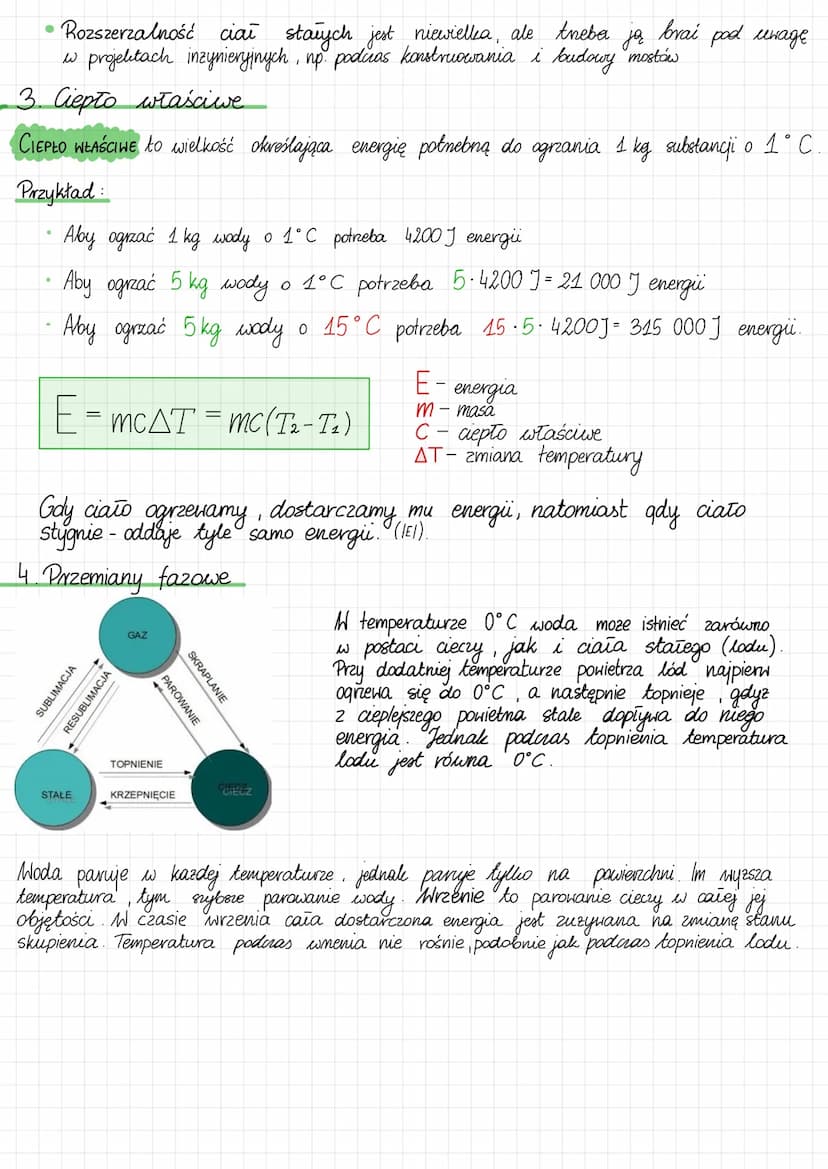 • Rozszerzalność ciał stałych jest niewielka, ale trzeba ją brać pod uwagę
w projektach inżynieryjnych, np. podczas konstruowania i budowy mostów
3. Ciepło właściwe
CIEPŁO WŁAŚCIWE to wielkość określająca energię potrzebną do ogrzania 1 kg substancji o 1°C.
Przykład:
• Aby ogrzać 1 kg wody o 1°C potrzeba 4200 J energii
• Aby ogrzać 5 kg wody o 1°C potrzeba 5·4200 J = 21 000 J energii
• Aby ogrzać 5 kg wody o 15°C potrzeba 15·5·4200J = 315 000 J energii.
E = mcΔT = mc(T₂-T₁)
E - energia
m - masa
C - ciepło właściwe
ΔT - zmiana temperatury
Gdy ciało ogrzewamy, dostarczamy mu energii, natomiast gdy ciało
stygnie - oddaje tyle samo energii. (|E|).
4. Przemiany fazowe
GAZ
SUBLIMACJA
RESUBLIMACJA
SKRAPLANIE
PAROWANIE
TOPNIENIE
STAŁE
KRZEPNIĘCIE
CIECZ
W temperaturze 0°C woda może istnieć zarówno
w postaci cieczy, jak i ciała stałego (lodu).
Przy dodatniej temperaturze powietrza lód najpierw
ogrzewa się do 0°C, a następnie topnieje, gdyż
z cieplejszego powietrza stale dopływa do niego
energia. Jednak podczas topnienia temperatura
lodu jest równa 0°C.
Woda paruje w każdej temperaturze, jednak paruje tylko na powierzchni. Im wyższa
temperatura, tym szybsze parowanie wody. Wrzenie to parowanie cieczy w całej jej
objętości. W czasie wrzenia cała dostarczona energia jest zużywana na zmianę stanu
skupienia. Temperatura podczas wrzenia nie rośnie, podobnie jak podczas topnienia lodu.